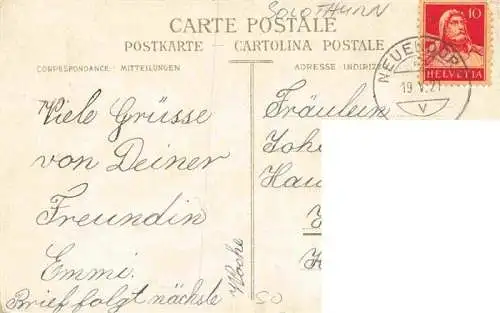 SOLOTHURN
CARTE POSTALE
POSTKARTE — CARTOLINA POSTALE
CORRESPONDANCE - MITTEILUNGEN
ADRESSE - INDIRIZ
10
HELVETIA
NEUENDORF
19.V.21
V
Viele Grüsse
von Deiner
Freundin
Emmi.
Brief folgt nächste
Woche
Fräulein
Joh
Hau
SO